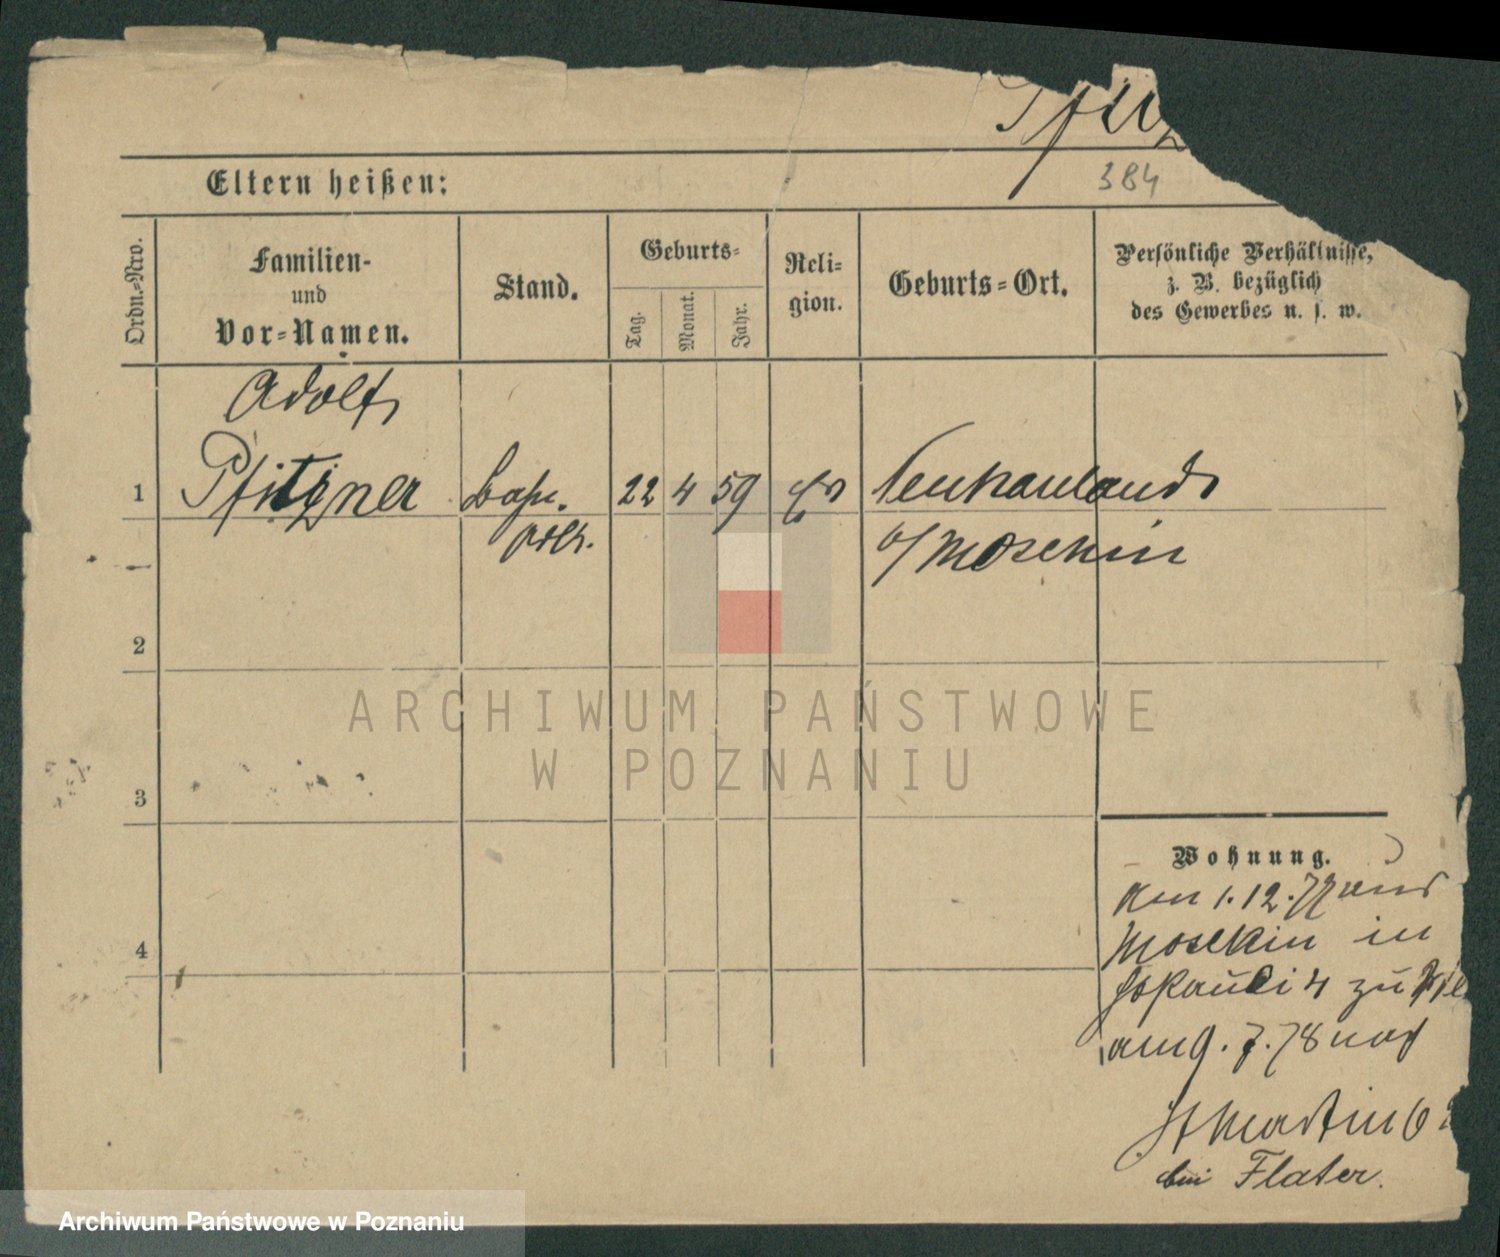 Pfitz
384
Eltern heißen:
Ordn.-Nro.
Familien-
und
Vor-Namen.
Stand.
Geburts-
Tag.
Monat.
Jahr.
Reli-
gion.
Geburts-Ort.
Persönliche Verhältnisse,
z. B. bezüglich
des Gewerbes u. s. w.
Adolf
1 Pfitzner 22 4 59 ev Neukauland
b/ Moschin
2
3
4
Wohnung.
Am 1. 12. 77 aus
Moschin in
4 zu
am 9. 7. 78 nach
St Martin 6
bei Flater.
ARCHIWUM PAŃSTWOWE
W POZNANIU
Archiwum Państwowe w Poznaniu